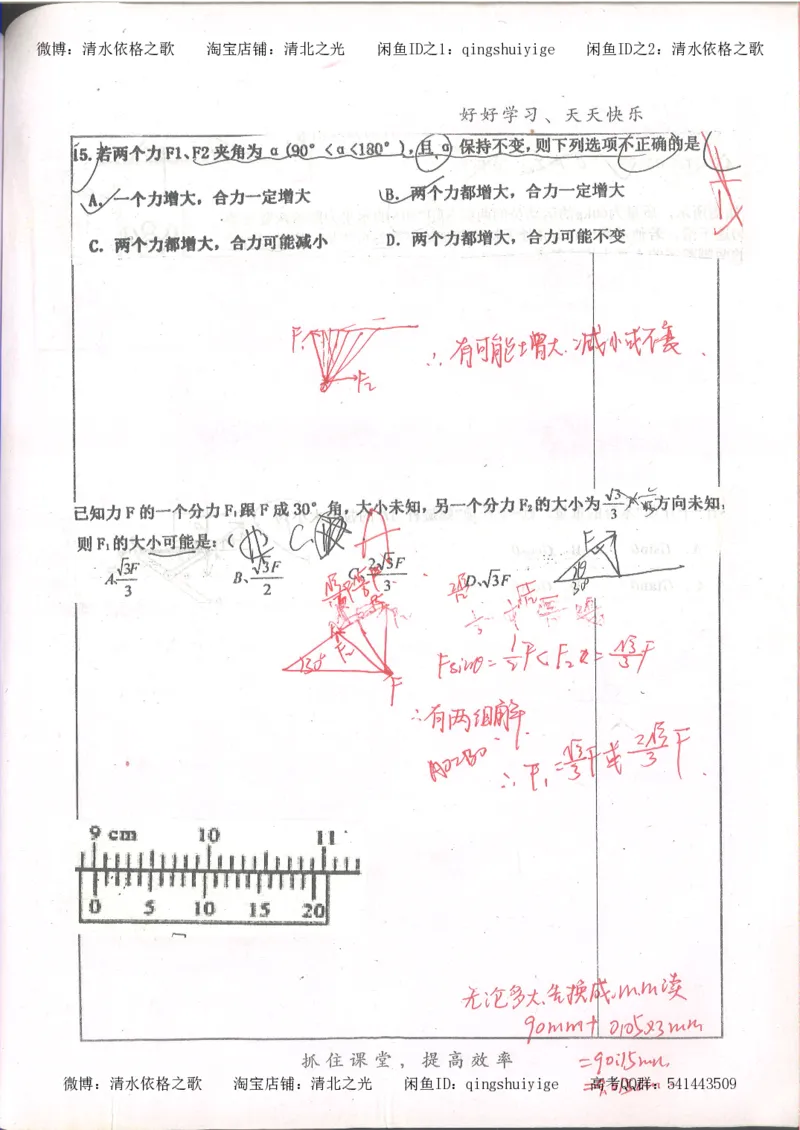 微博：清水依格之歌 淘宝店铺：清北之光 闲鱼ID之1：qingshuiyige 闲鱼ID之2：清水依格之歌
好好学习、天天快乐
15.若两个力F1、F2夹角为α(90°<α<180°)，且α保持不变，则下列选项不正确的是
A. 一个力增大，合力一定增大 B. 两个力都增大，合力一定增大
C. 两个力都增大，合力可能减小 D. 两个力都增大，合力可能不变
F₁
F₂
∴有可能增大.减小或不变.
已知力F的一个分力F₁跟F成30°角，大小未知，另一个分力F₂的大小为 √3/3 方向未知，
则F₁的大小可能是：( )
A. √3F/3 B、√3F/2 C、2√3F/3 D、√3F
30°
F₂
F
30°
Fsinθ=1/2F<F₂=√3/3F
∴有两组解.
∴F₁=√3/3F或2√3/3F.
9 cm 10 11
0 5 10 15 20
无论多大，先换成mm读
90mm+0.05×3mm
=90.15mm
抓住课堂，提高效率
微博：清水依格之歌 淘宝店铺：清北之光 闲鱼ID：qingshuiyige 高考QQ群：541443509